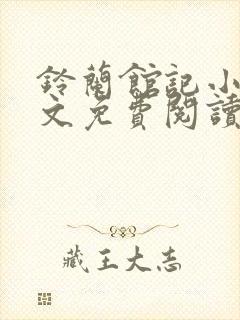 鈴蘭館記小
文免費閱讀
藏王大志